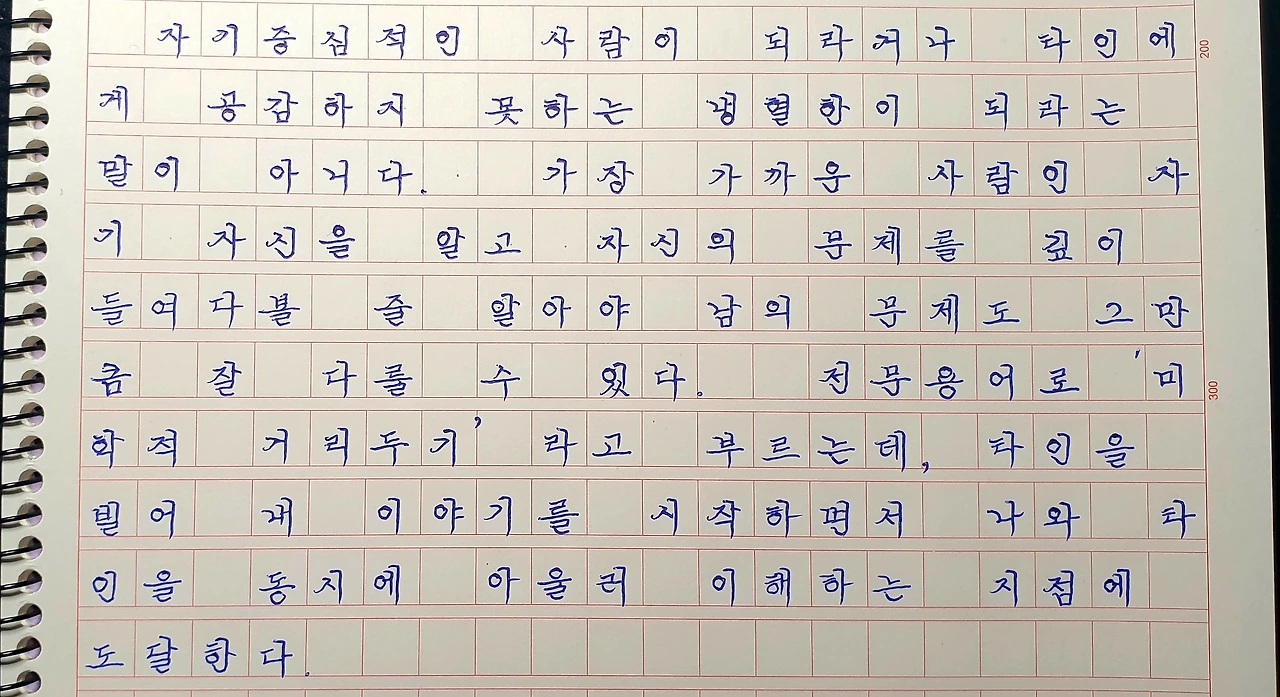 자기중심적인 사람이 되라거나 타인에 200
게 공감하지 못하는 냉혈한이 되라는
말이 아니다. 가장 가까운 사람인 자
기 자신을 알고 자신의 문제를 깊이
들여다볼 줄 알아야 남의 문제도 그만
큼 잘 다룰 수 있다. 전문용어로 '미 300
학적 거리두기' 라고 부르는데, 타인을
빌어 내 이야기를 시작하면서 나와 타
인을 동시에 아울러 이해하는 지점에
도달한다.